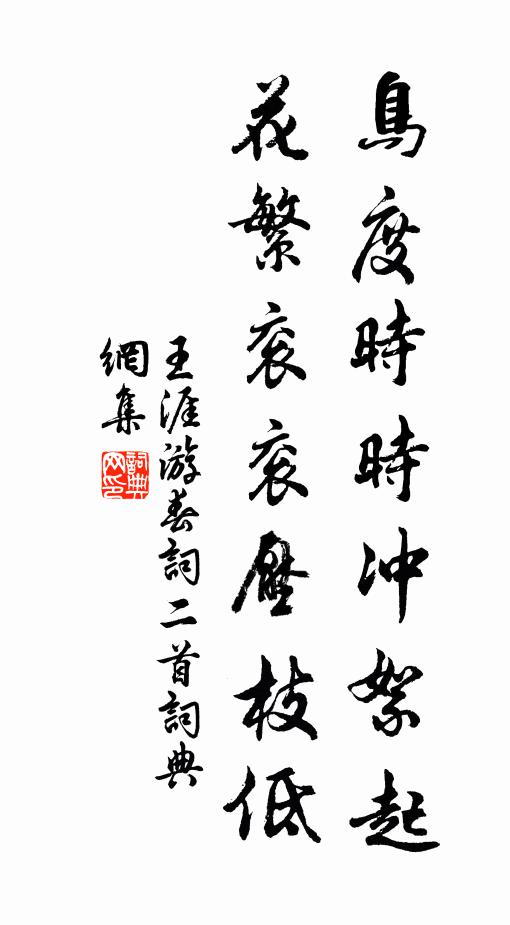 鳥度時時沖絮起
花繁衮衮壓枝低
王涯游春詞二首詞典
網集
詞典網印